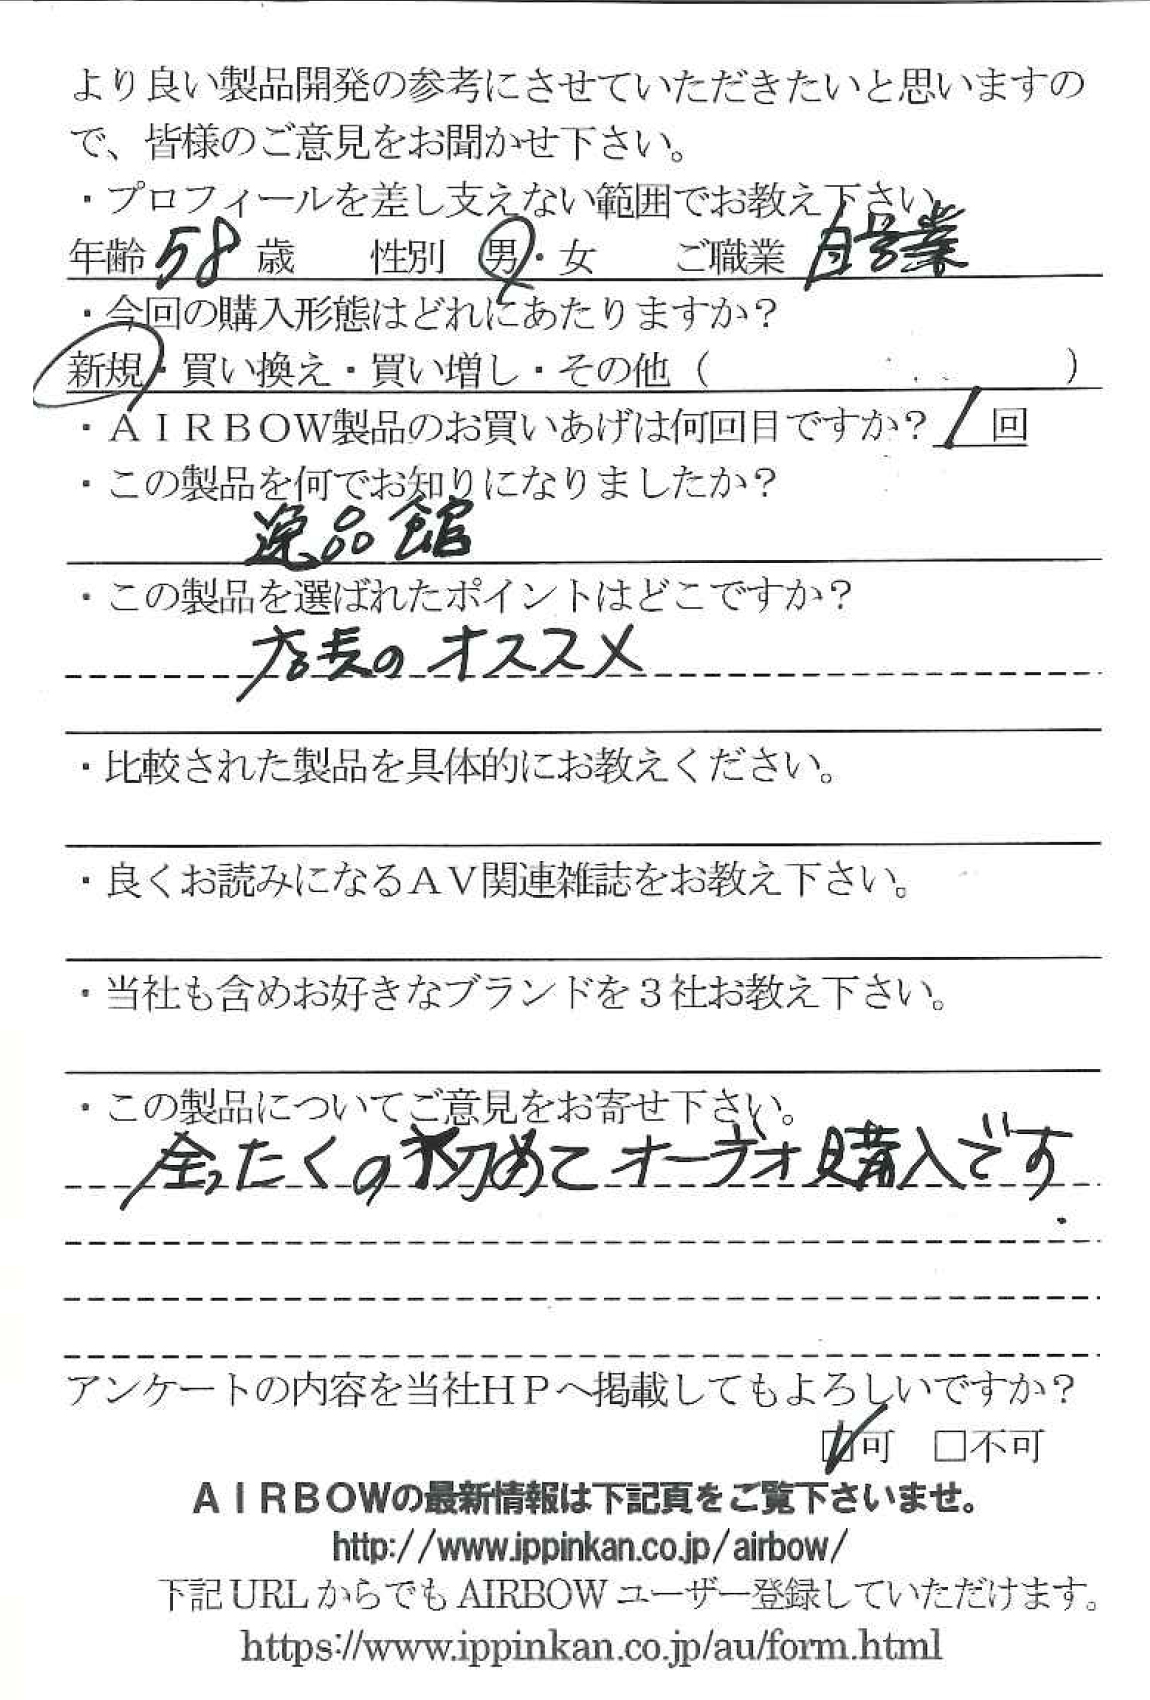 より良い製品開発の参考にさせていただきたいと思いますの
で、皆様のご意見をお聞かせ下さい。
・プロフィールを差し支えない範囲でお教え下さい
年齢 58 歳 性別 男・女 ご職業 自営業
・今回の購入形態はどれにあたりますか?
新規・買い換え・買い増し・その他 ( )
・AIRBOW製品のお買いあげは何回目ですか? 1 回
・この製品を何でお知りになりましたか?
逸品館
・この製品を選ばれたポイントはどこですか?
店長のオススメ
・比較された製品を具体的にお教えください。
・良くお読みになるAV関連雑誌をお教え下さい。
・当社も含めお好きなブランドを3社お教え下さい。
・この製品についてご意見をお寄せ下さい。
全ったくの初めてオーデオ購入です.
アンケートの内容を当社HPへ掲載してもよろしいですか?
☑可 □不可
AIRBOWの最新情報は下記頁をご覧下さいませ。
http://www.ippinkan.co.jp/airbow/
下記URLからでもAIRBOWユーザー登録していただけます。
https://www.ippinkan.co.jp/au/form.html